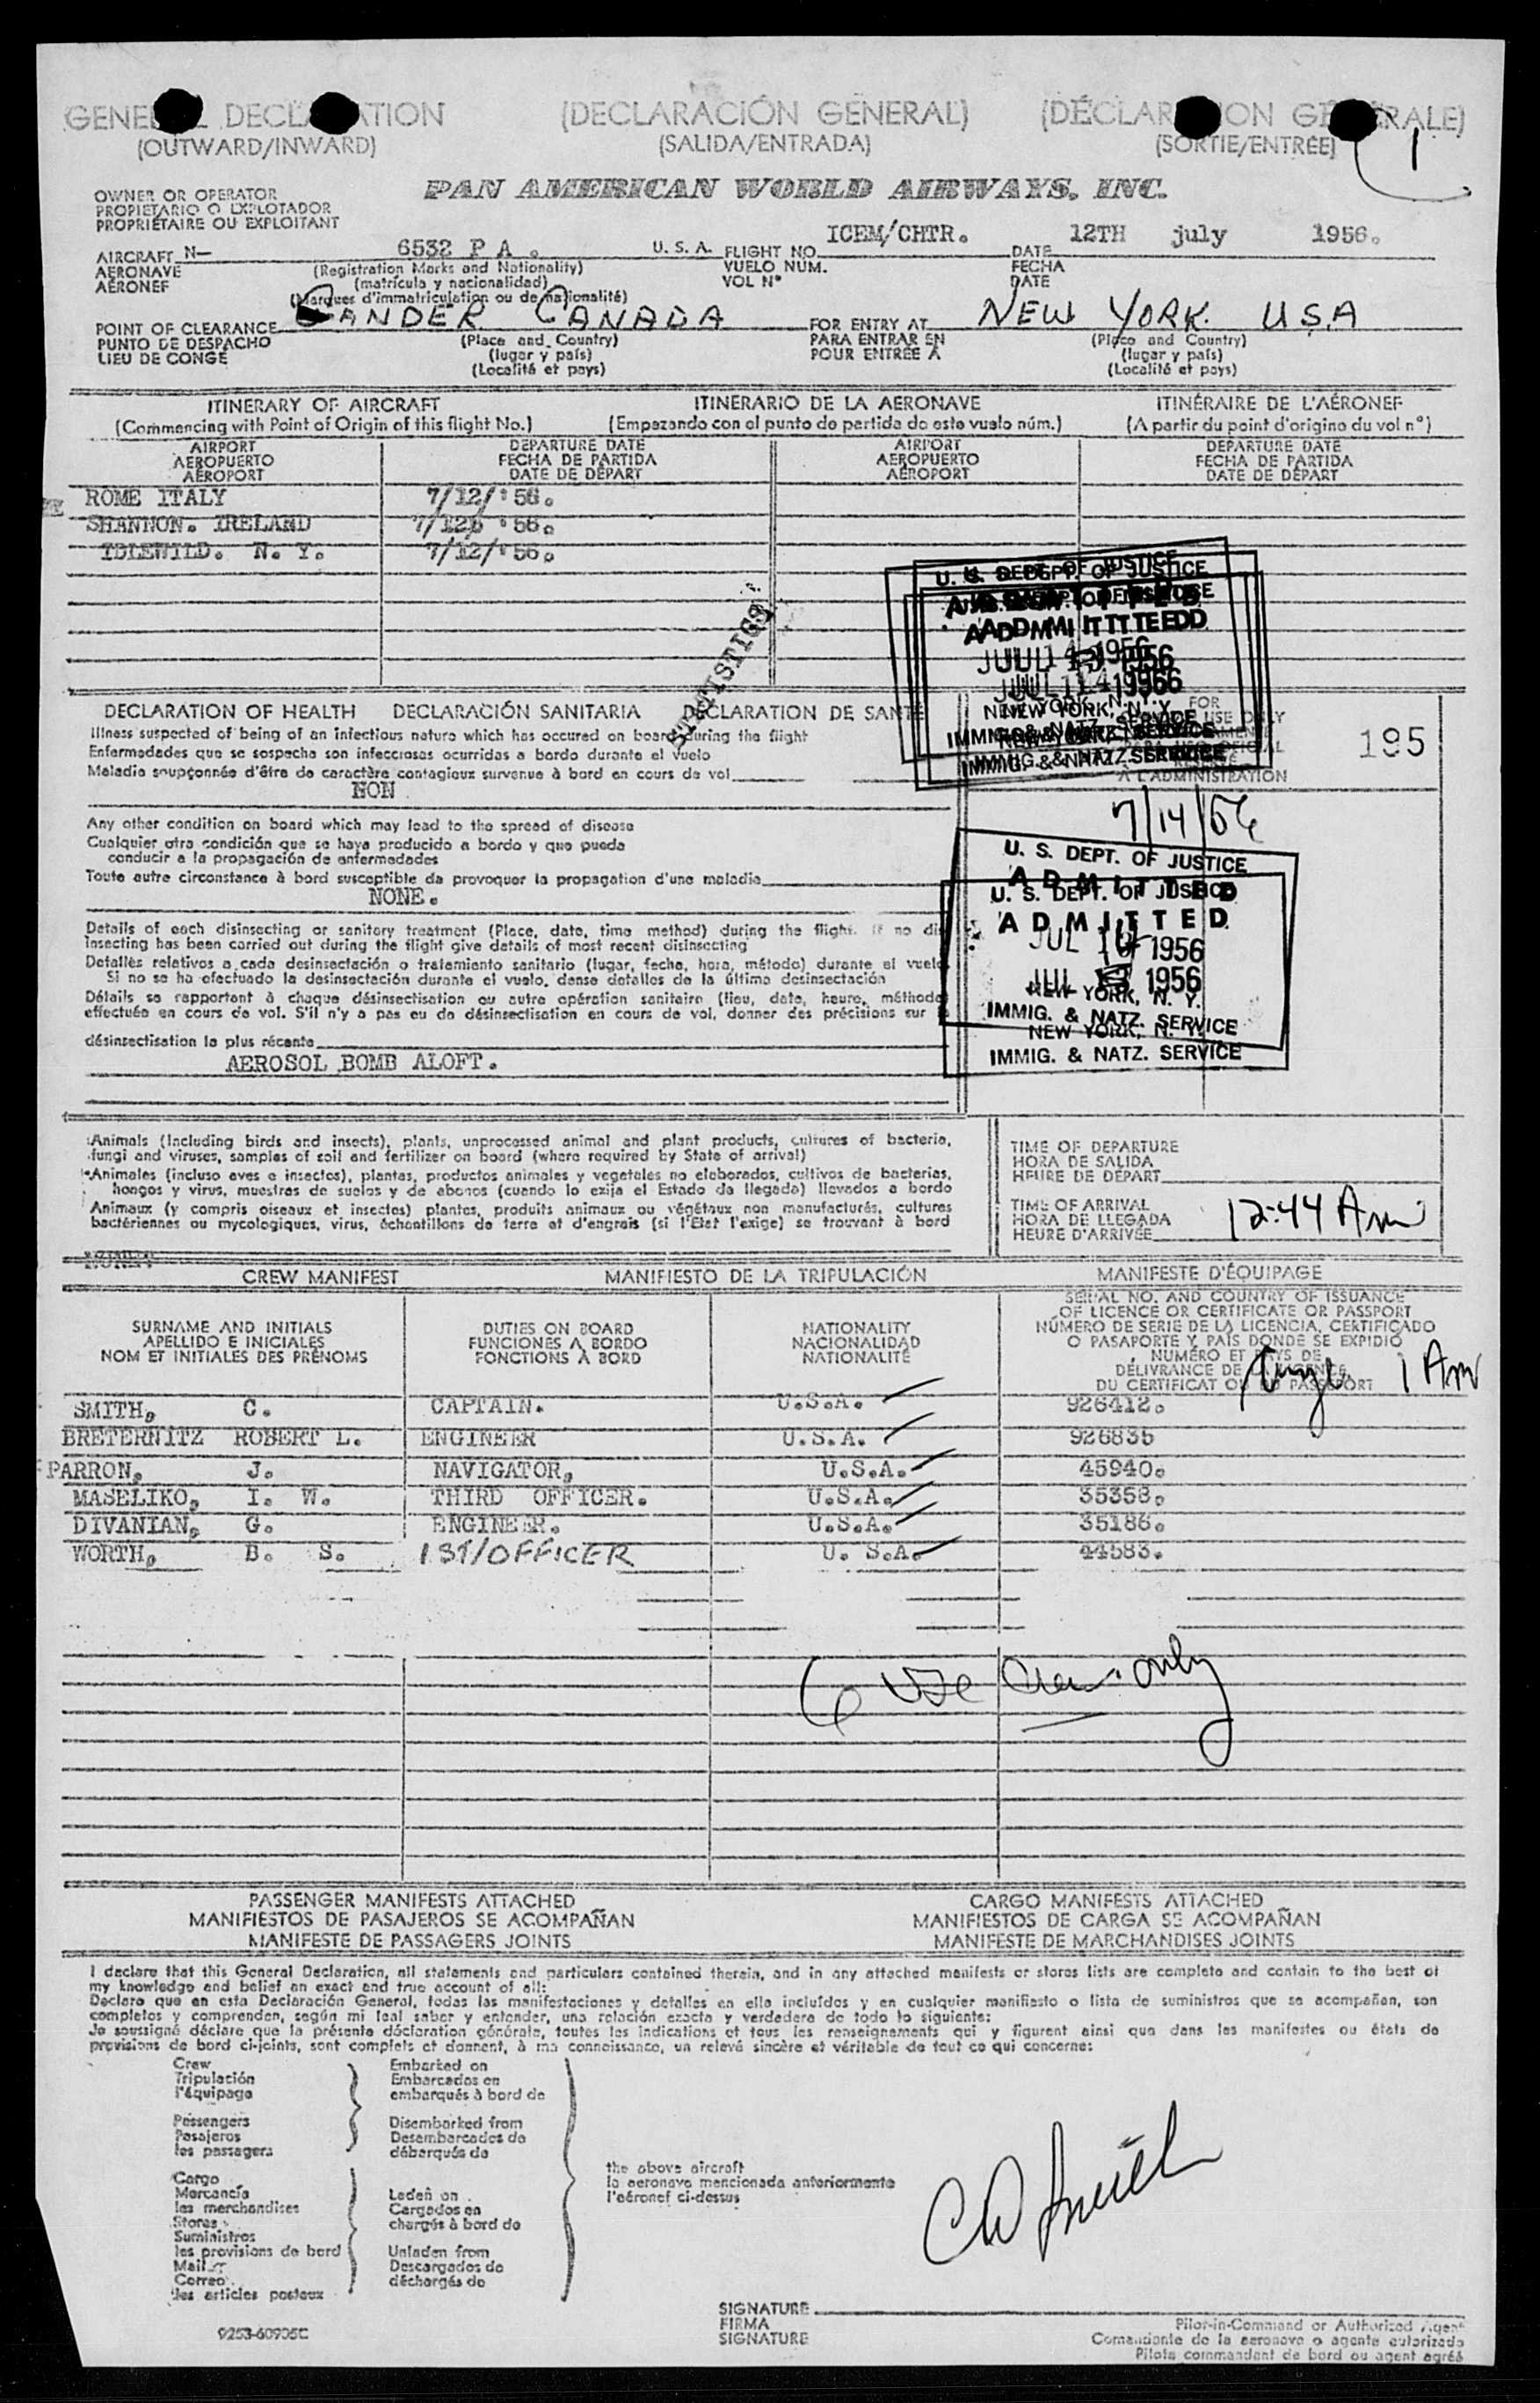 (DECLARACIÓN GENERAL)
(OUTWARD/INWARD) (SALIDA/ENTRADA) (SORTIE/ENTRÉE)
1
OWNER OR OPERATOR
PROPIETARIO O EXPLOTADOR
PROPRIÉTAIRE OU EXPLOITANT
PAN AMERICAN WORLD AIRWAYS, INC.
AIRCRAFT N— 6532 P A . U. S. A. FLIGHT NO. ICEM/CHTR. DATE 12TH july 1956.
AERONAVE (Registration Marks and Nationality) VUELO NÚM. FECHA
AÉRONEF (matrícula y nacionalidad) VOL N° DATE
(Marques d'immatriculation ou de nationalité)
POINT OF CLEARANCE GANDER CANADA FOR ENTRY AT NEW YORK USA
PUNTO DE DESPACHO (Place and Country) PARA ENTRAR EN (Place and Country)
LIEU DE CONGÉ (lugar y país) POUR ENTRÉE À (lugar y país)
(Localité et pays) (Localité et pays)
ITINERARY OF AIRCRAFT ITINERARIO DE LA AERONAVE ITINÉRAIRE DE L'AÉRONEF
(Commencing with Point of Origin of this flight No.) (Empezando con el punto de partida de este vuelo núm.) (A partir du point d'origine du vol n°)
AIRPORT DEPARTURE DATE AIRPORT DEPARTURE DATE
AEROPUERTO FECHA DE PARTIDA AEROPUERTO FECHA DE PARTIDA
AÉROPORT DATE DE DÉPART AÉROPORT DATE DE DÉPART
ROME ITALY 7/12/'56.
SHANNON. IRELAND 7/12 '56.
IDLEWILD. N. Y. 7/12/'56.
STATISTICS
U. S. DEPT. OF JUSTICE
ADMITTED
JUL 14 1956
NEW YORK, N. Y.
IMMIG. & NATZ. SERVICE
DECLARATION OF HEALTH DECLARACIÓN SANITARIA DÉCLARATION DE SANTÉ
FOR
USE ONLY
À L'ADMINISTRATION
195
Illness suspected of being of an infectious nature which has occured on board during the flight
Enfermedades que se sospecha son infecciosas ocurridas a bordo durante el vuelo
Maladie soupçonnée d'être de caractère contagieux survenue à bord en cours de vol
NON
7/14/56
Any other condition on board which may lead to the spread of disease
Cualquier otra condición que se haya producido a bordo y que pueda
conducir a la propagación de enfermedades
Toute autre circonstance à bord susceptible de provoquer la propagation d'une maladie
NONE.
U. S. DEPT. OF JUSTICE
ADMITTED
U. S. DEPT. OF JUSTICE
ADMITTED
JUL 1956
JUL 1956
NEW YORK, N. Y.
IMMIG. & NATZ. SERVICE
NEW YORK, N. Y.
IMMIG. & NATZ. SERVICE
Details of each disinsecting or sanitary treatment (Place, date, time method) during the flight. If no
insecting has been carried out during the flight give details of most recent disinsecting
Detalles relativos a cada desinsectación o tratamiento sanitario (lugar, fecha, hora, método) durante el vuelo
Si no se ha efectuado la desinsectación durante el vuelo, dense detalles de la última desinsectación
Détails se rapportant à chaque désinsectisation ou autre opération sanitaire (lieu, date, heure, méthode
effectuée en cours de vol. S'il n'y a pas eu de désinsectisation en cours de vol, donner des précisions sur
désinsectisation la plus récente
AEROSOL BOMB ALOFT.
Animals (Including birds and insects), plants, unprocessed animal and plant products, cultures of bacteria,
fungi and viruses, samples of soil and fertilizer on board (where required by State of arrival)
Animales (incluso aves e insectos), plantas, productos animales y vegetales no elaborados, cultivos de bacterias,
hongos y virus, muestras de suelos y de abonos (cuando lo exija el Estado de llegada) llevados a bordo
Animaux (y compris oiseaux et insectes) plantes, produits animaux ou végétaux non manufacturés, cultures
bactériennes ou mycologiques, virus, échantillons de terre et d'engrais (si l'État l'exige) se trouvant à bord
TIME OF DEPARTURE
HORA DE SALIDA
HEURE DE DÉPART
TIME OF ARRIVAL
HORA DE LLEGADA
HEURE D'ARRIVÉE 12:44 Am
CREW MANIFEST MANIFIESTO DE LA TRIPULACIÓN MANIFESTE D'ÉQUIPAGE
SURNAME AND INITIALS
APELLIDO E INICIALES
NOM ET INITIALES DES PRÉNOMS
DUTIES ON BOARD
FUNCIONES A BORDO
FONCTIONS À BORD
NATIONALITY
NACIONALIDAD
NATIONALITÉ
SERIAL NO. AND COUNTRY OF ISSUANCE
OF LICENCE OR CERTIFICATE OR PASSPORT
NÚMERO DE SERIE DE LA LICENCIA, CERTIFICADO
O PASAPORTE Y PAÍS DONDE SE EXPIDIÓ
NUMÉRO ET PAYS DE
DÉLIVRANCE DE
DU CERTIFICAT OU PASSEPORT
1 Am
SMITH, C. CAPTAIN. U.S.A. 926412.
BRETERNITZ ROBERT L. ENGINEER U.S.A. 926835
PARRON, J. NAVIGATOR, U.S.A. 45940.
MASELIKO, I. W. THIRD OFFICER. U.S.A. 35358.
DIVANIAN, G. ENGINEER. U.S.A. 35186.
WORTH, B. S. 1ST/OFFICER U. S.A. 44583.
6 Use Crew only
PASSENGER MANIFESTS ATTACHED CARGO MANIFESTS ATTACHED
MANIFIESTOS DE PASAJEROS SE ACOMPAÑAN MANIFIESTOS DE CARGA SE ACOMPAÑAN
MANIFESTE DE PASSAGERS JOINTS MANIFESTE DE MARCHANDISES JOINTS
I declare that this General Declaration, all statements and particulars contained therein, and in any attached manifests or stores lists are complete and contain to the best of
my knowledge and belief an exact and true account of all:
Declaro que en esta Declaración General, todas las manifestaciones y detalles en ella incluídos y en cualquier manifiesto o lista de suministros que se acompañan, son
completos y comprenden, según mi leal saber y entender, una relación exacta y verdadera de todo lo siguiente:
Je soussigné déclare que la présente déclaration générale, toutes les indications et tous les renseignements qui y figurent ainsi que dans les manifestes ou états de
provisions de bord ci-joints, sont complets et donnent, à ma connaissance, un relevé sincère et véritable de tout ce qui concerne:
Crew
Tripulación
l'équipage
Passengers
Pasajeros
les passagers
Embarked on
Embarcados en
embarqués à bord de
Disembarked from
Desembarcados de
débarqués de
Cargo
Mercancía
les merchandises
Stores
Suministros
les provisions de bord
Mail
Correo
les articles postaux
Laden on
Cargados en
chargés à bord de
Unladen from
Descargados de
déchargés de
the above aircraft
la aeronave mencionada anteriormente
l'aéronef ci-dessus
CW Smith
SIGNATURE
FIRMA
SIGNATURE
Pilot-in-Command or Authorized Agent
Comandante de la aeronave o agente autorizado
Pilote commandant de bord ou agent agréé
9253-60905C